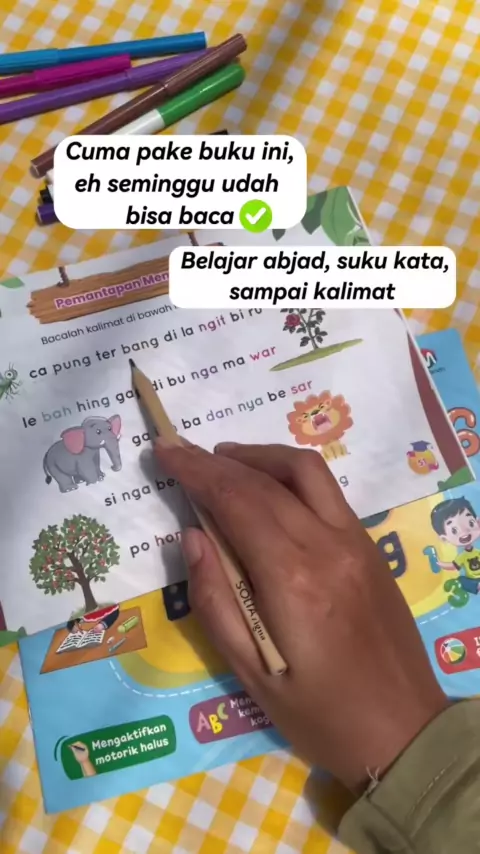 Cuma pake buku ini,
eh seminggu udah
bisa baca ✅
Belajar abjad, suku kata,
sampai kalimat
Pemantapan
Bacalah kalimat di bawah
ca pung ter bang di la ngit bi ru
le bah hing gap di bu nga ma war
ba dan nya be sar
si nga
po hon
SOLITA
Mengaktifkan
motorik halus
ABC